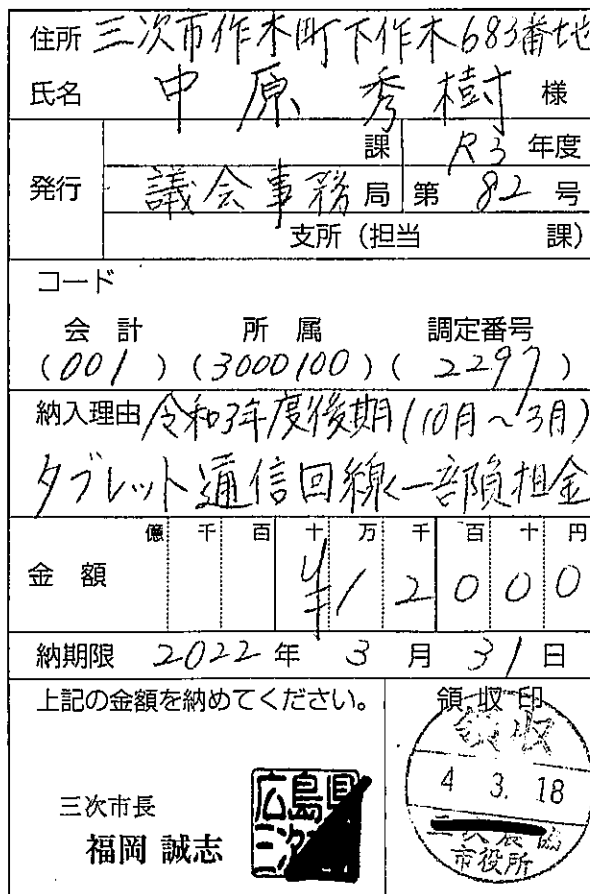 住所 三次市作木町下作木683番地
氏名 中原 秀樹 様
発行 課 R3年度
議会事務局 第82号
支所(担当 課)
コード
会計 所属 調定番号
(001)(3000100)(2297)
納入理由 令和3年度後期(10月~3月)
タブレット通信回線一部負担金
億 千 百 十 万 千 百 十 円
金額 ¥12000
納期限 2022年3月31日
上記の金額を納めてください。
領収印
領収
4 3. 18
市役所
三次市長
福岡 誠志
広島県
三次